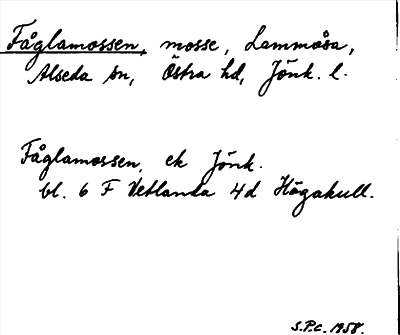 Fåglamossen, mosse, Lammåsa,
Alseda sn, Östra hd, Jönk. l.
Fåglamossen, ek Jönk.
bl. 6 F Vetlanda 4d Högakull.
S.P.C. 1958.